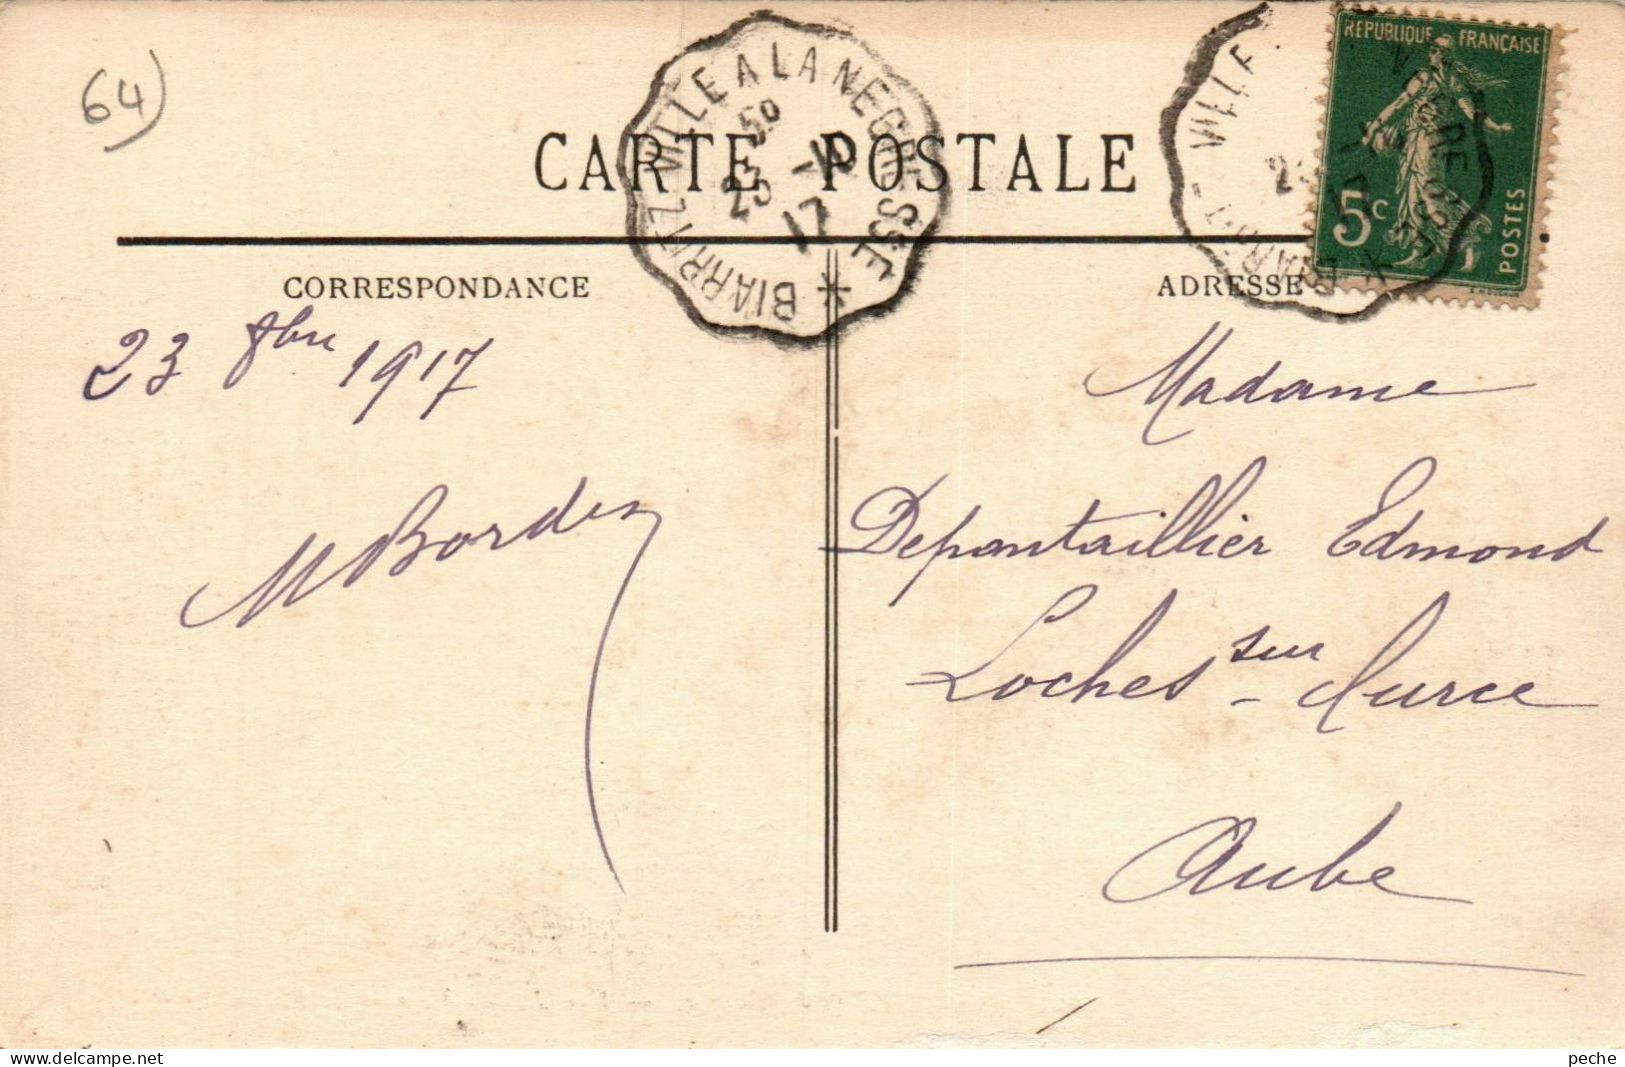 64)
BIARRITZ-VILLE A LA NEGRESSE
5º
23 -10
17
CARTE POSTALE
REPUBLIQUE FRANÇAISE
5c
POSTES
CORRESPONDANCE
ADRESSE
23 8bre 1917
Madame
Depontaillier Edmond
Loches sur Ource
Aube
delcampe.net
peche